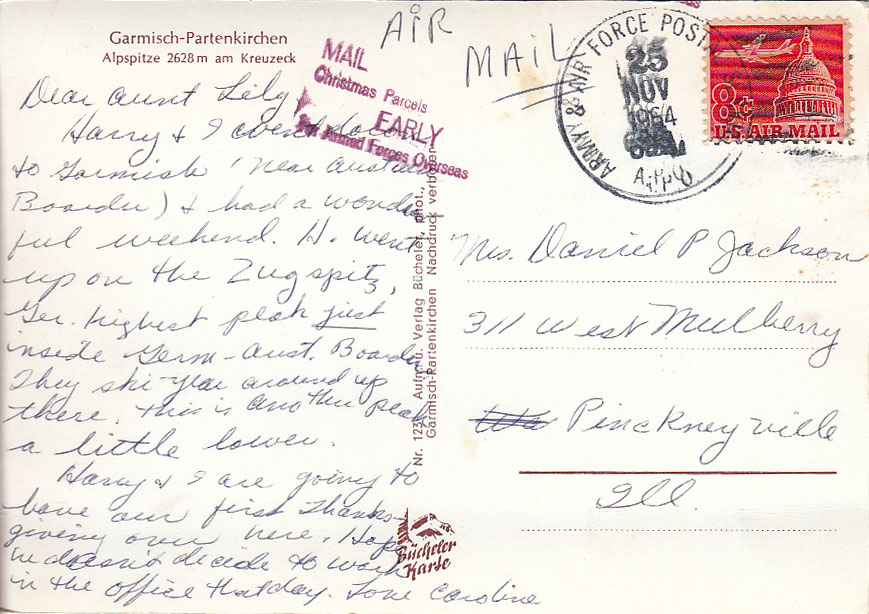 Garmisch-Partenkirchen
Alpspitze 2628 m am Kreuzeck
AIR
MAIL
MAIL
Christmas Parcels
EARLY
For Armed Forces Overseas
ARMY & AIR FORCE POSTAL
25
NOV
1964
A.P.O
8¢
US AIR MAIL
Dear Aunt Lily,
Harry & I went down
to Garmish (near Austrian
Boarder) & had a wonder
ful weekend. H. went
up on the Zugspitz,
Ger. highest peak just
inside Germ-Aust. Boarder
They ski year around up
there. This is another peak
a little lower.
Harry & I are going to
have our first Thanks-
giving over here. Hope
he doesn't decide to work
in the office that day. Love Caroline
Nr. 1231 Aufn. u. Verlag Bücheler, phot.,
Garmisch-Partenkirchen Nachdruck verboten
Bücheler
Karte
Mrs. Daniel P Jackson
311 West Mulberry
Pinckneyville
Ill.